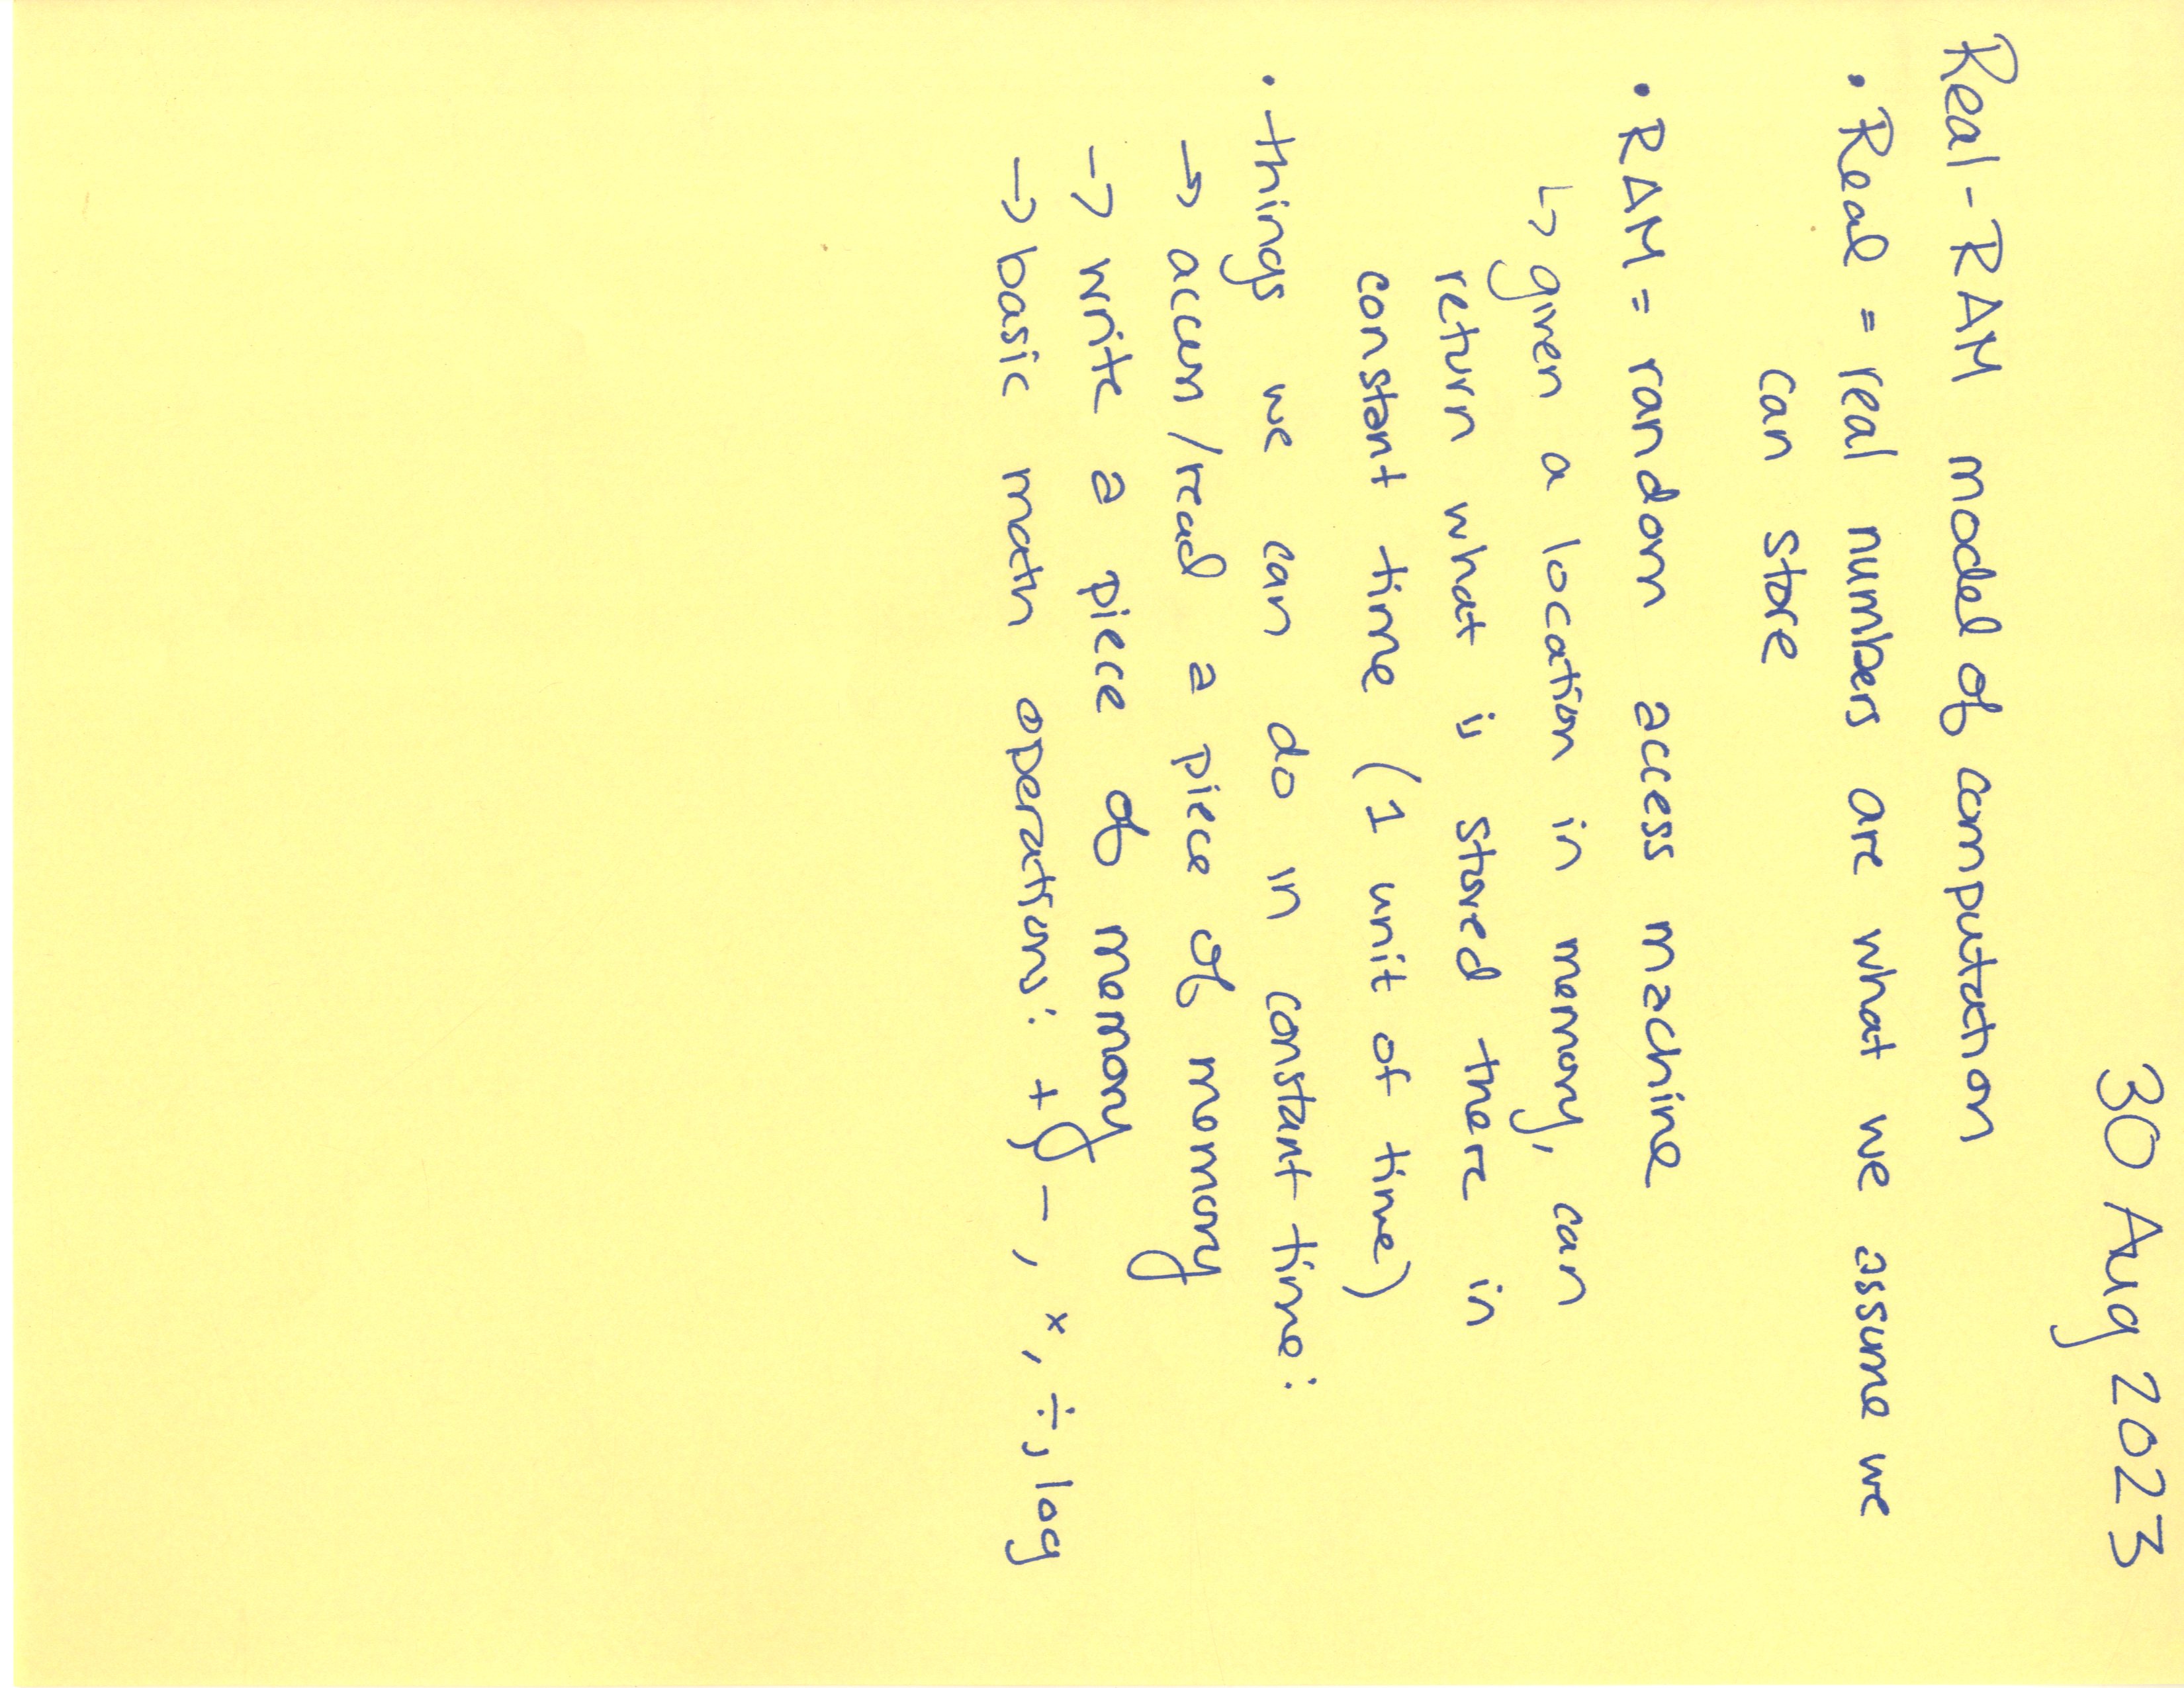 30 Aug 2023
Real-RAM model of computation
• Real = real numbers are what we assume we
can store
• RAM = random access machine
↳ given a location in memory, can
return what is stored there in
constant time (1 unit of time)
• things we can do in constant time:
→ access/read a piece of memory
→ write a piece of memory
→ basic math operations: +, -, ×, ÷, log